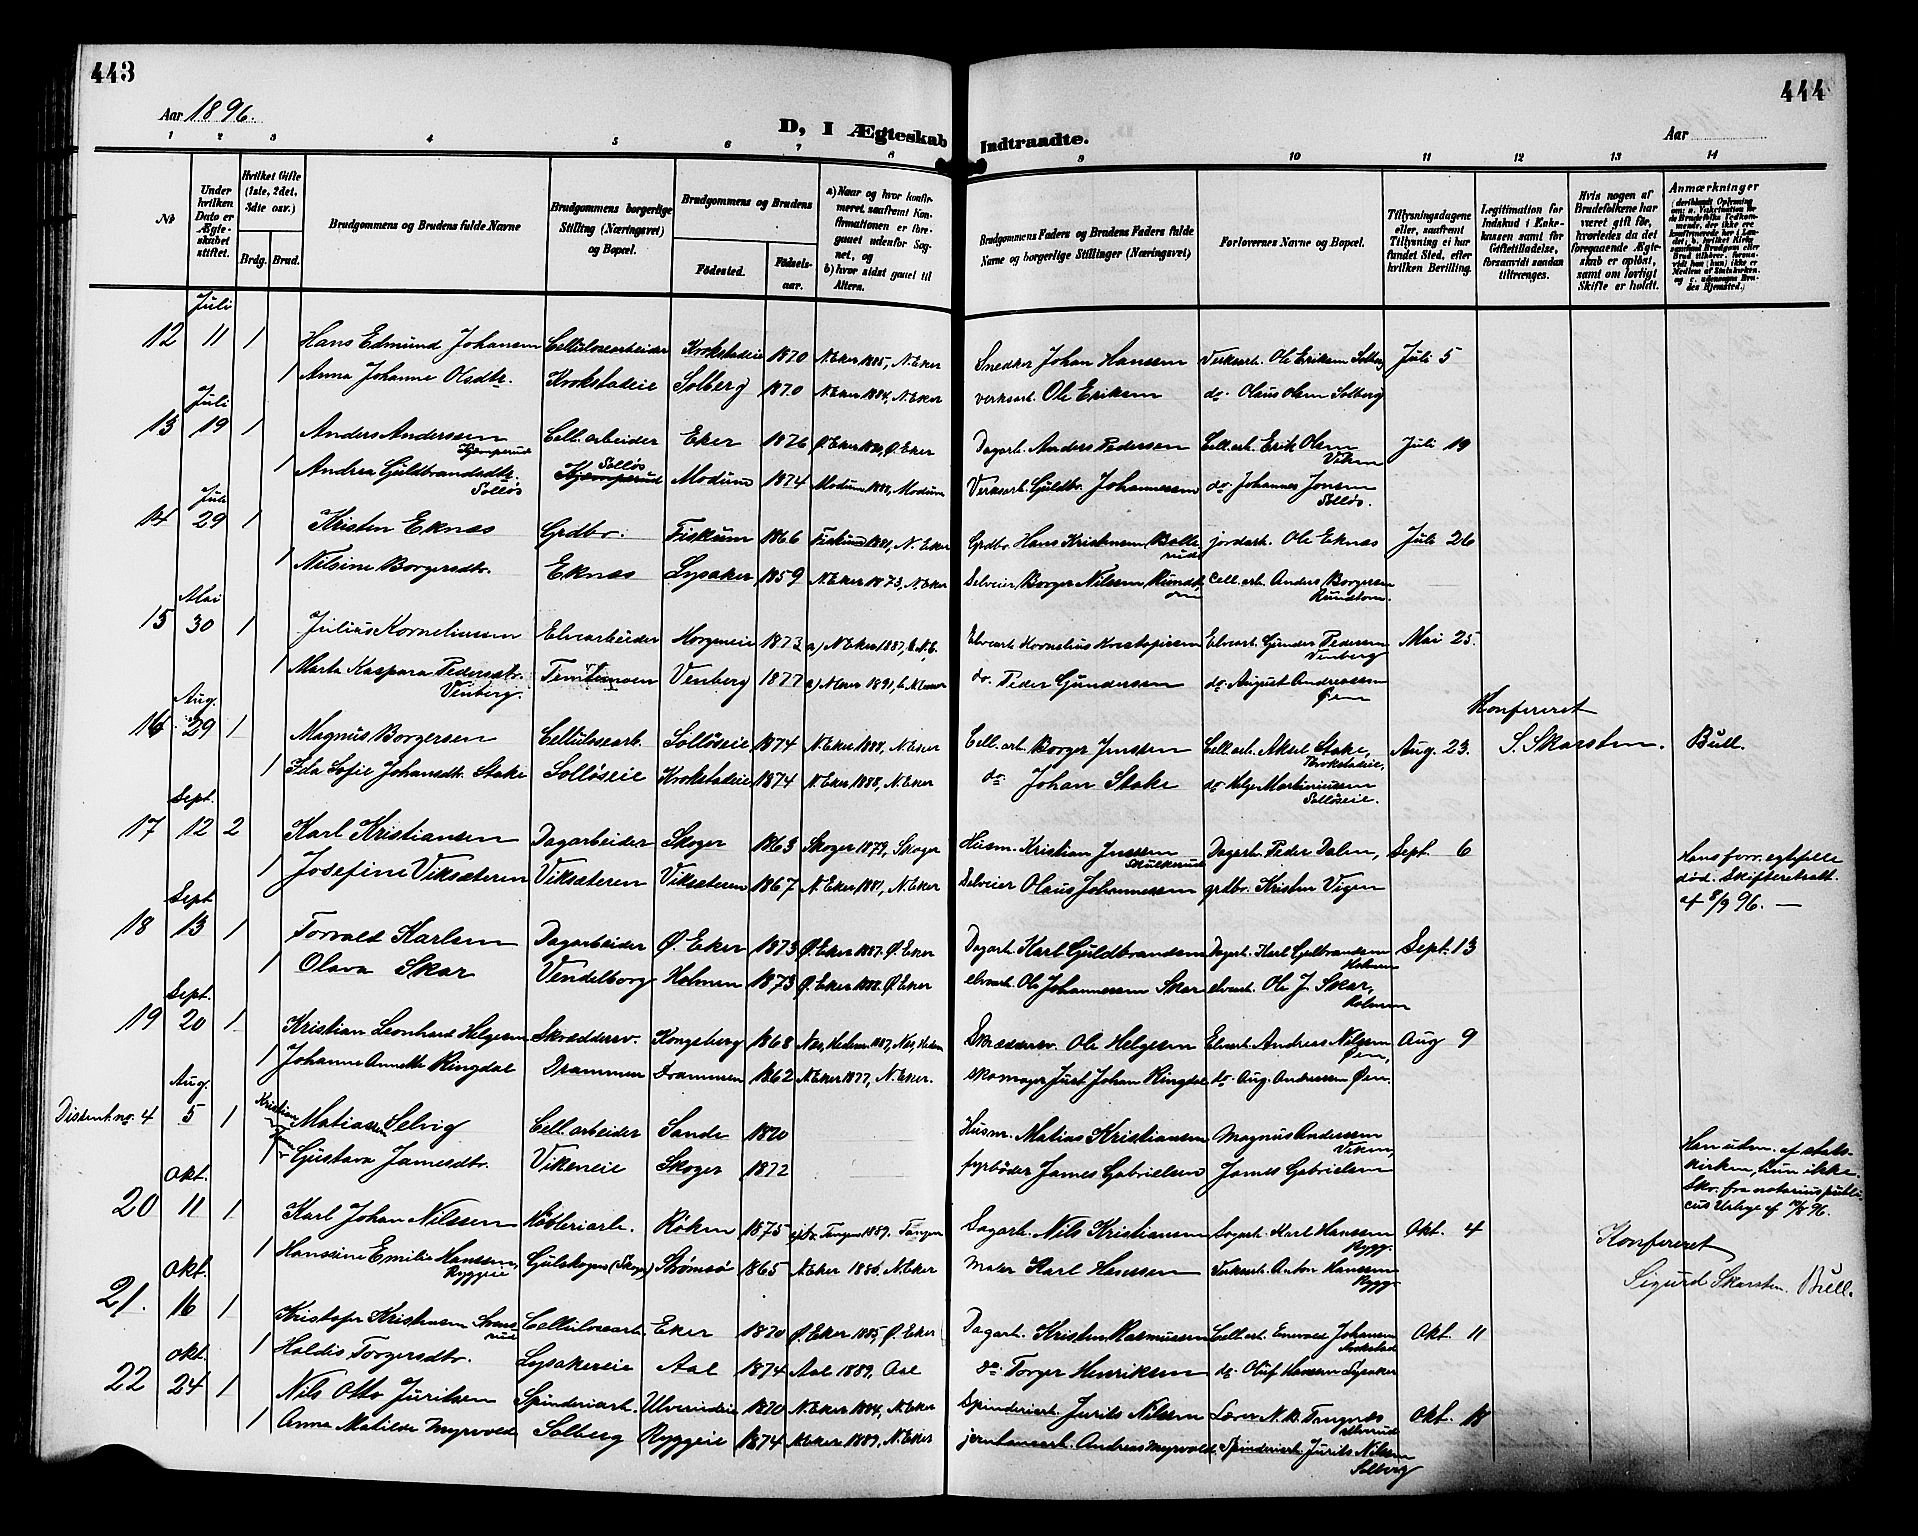 443
Aar 1896.
D, I Ægteskab Indtraadte.
444
Aar
1 2 3 4 5 6 7 8 9 10 11 12 13 14
No
Under hvilken Dato er Ægteskabet stiftet.
Hvilket Gifte (1ste, 2det, 3dte osv.)
Brdg. Brud.
Brudgommens og Brudens fulde Navne
Brudgommens borgerlige Stilling (Næringsvei) og Bopæl.
Brudgommens og Brudens
Fødested.
Fødselsaar.
a) Naar og hvor konfirmeret, saafremt Konfirmationen er foregaaet udenfor Sognet, og
b) hvor sidst gaaet til Alters.
Brudgommens Faders og Brudens Faders fulde Navne og borgerlige Stillinger (Næringsvei)
Forlovernes Navne og Bopæl.
Tillysningsdagene eller, saafremt Tillysning ei har fundet Sted, efter hvilken Bevilling.
Legitimation for Indskud i Enkekassen samt for Giftetilladelse, forsaavidt saadan tiltrænges.
Hvis nogen af Brudefolkene har været gift før, hvorledes da det foregaaende Ægteskab er opløst, samt om lovligt Skifte er holdt.
Anmærkninger
Juli
12 11 1 Hans Edmund Johansen Cellulosearbeider Krokstadeie 1870 N. Eker 1885, N. Eker Snedker Johan Hanssen Verksarb. Ole Eriksen Solberg Juli 5
1 Anna Johanne Olsdtr. Krokstadeie Solberg 1870 N. Eker 1884, N. Eker verksarb. Ole Eriksen do. Olaus Olsen Solberg
Juli
13 19 1 Anders Anderssen Kjemperud Cell. arbeider Eker 1876 Ø. Eker, Ø. Eker Dagarb. Anders Pedersen Cell. arb. Erik Olsen Viken Juli 19
1 Andrea Guldbrandsdtr. Solløs Solløs Kjemperud Modum 1874 Modum, Modum Verksarb. Guldbr. Johannessen do. Johannes Jonsen Solløs.
Juli
14 29 1 Kristen Eknæs Grdbr. Fiskum 1866 Fiskum 1881, N. Eker Grdbr. Hans Kristensen Bollerud jordarb. Ole Eknæs Juli 26
1 Nilsine Borgersdtr. Eknæs Lysaker 1859 N. Eker 1873, N. Eker Selveier Borger Nilssen Rundtom Cell. arb. Anders Borgersen Rundtom
Mai
15 30 1 Julius Korneliussen Elvearbeider Horgeneie 1873 a) N. Eker 1887, b. N. E. Elvearb. Kornelius Kristofersen Elvearb. Gunder Pedersen Venberg Mai 25
1 Marte Kaspara Pedersdtr. Venberg. Temtemoen Venberg 1877 a) N. Eker 1891, b. N. Eker do. Peder Gundersen do. August Andreassen Øen
Aug.
16 29 1 Magnus Borgersen Cellulosearb. Solløseie 1874 N. Eker 1888, N. Eker Cell. arb. Borger Jenssen Cell. arb. Aksel Stake, Krokstadeie, Aug. 23. Konfereret S. Skarsten. Bull.
1 Ida Sofie Johansdtr. Stake Solløseie Krokstadeie 1874 N. Eker 1888, N. Eker do. Johan Stake do. Helge Martiniussen Solløseie.
Sept.
17 12 2 Karl Kristiansen Dagarbeider Skoger 1863 Skoger 1879, Skoger Husm. Kristian Jenssen Skulkerud Dagarb. Peder Dalen, Sept. 6 Hans forr. egtefelle død. Skifteretsatt. af 8/9 96. —
1 Josefine Viksæteren Viksæteren Viksæteren 1867 N. Eker 1881, N. Eker Selveier Olaus Johannessen grdbr. Kristen Vegen
Sept
18 13 1 Torvald Karlsen Dagarbeider Ø. Eker 1873 Ø. Eker 1887. Ø. Eker Dagarb. Karl Guldbrandsen Dagarb. Karl Gulbrandsen Holmen Sept. 13
1 Olava Skar Vendelborg Holmen 1873 Ø. Eker 1888. Ø Eker elvearb. Ole Johannessen Skar elvearb. Ole J. Skar, Holmen
Sept.
19 20 1 Kristian Leonhard Helgesen Skræddersv. Kongsberg 1868 Nes, Hedem. 1887, Nes, Hedem Skræddersv. Ole Helgesen Elvearb. Andreas Nilssen Øen, Aug 9
1 Johanne Annette Ringdal Drammen Drammen 1862 N. Eker 1877, N. Eker. skomager Just Johan Ringdal do. Aug. Andreassen Øen.
Aug.
Dissent. no. 4 5 1 Kristian Matiassen Selvig Cell. arbeider Sande 1870 Husm. Matias Kristiansen Magnus Anderssen Viken, Han udm. af statskirken, hun ikke Skr. fra notarius publicus
1 Gustava Jamesdtr. Vikeneie Skoger 1872 fyrbøder James Gabrielsen James Gabrielsen
Okt.
20 11 1 Karl Johan Nilssen Høvleriarb. Røken 1875 Tangen 1889. Tangen Dagarb. Nils Kristiansen Dagarb. Karl Hanssen Rygg. Okt. 4 Konfereret Sigurd Skarsten. Bull.
1 Hanssine Emilie Hanssen, Ryggeie Gulskogen (Skoger) Strømsø 1865 N. Eker 1880. N. Eker Maler Karl Hanssen Verksarb. Anton Hanssen Rygg.
Okt.
21. 16 1 Kristofer Kristensen Cellulosearb. Eker 1870 Ø. Eker 1885, Ø. Eker Dagarb. Kristen Rasmussen Cell. arb. Emvald Johansen Krokstad Okt. 11
1 Haldis Torgersdtr. Lysakereie Aal 1874 Aal 1889, Aal do. Torger Henriksen do. Oluf Hanssen Lysaker
Okt.
22 24 1 Nils Otto Juritsen Spinderiarb. Ulverudeie 1870 N. Eker 1884, N. Eker Spinderiarb. Jurits Nilssen Lærer N. B. Tangnæs Ulverud Okt. 18
1 Anna Matilde Myrvold Solberg Ryggeie 1874 N. Eker 1889, N. Eker jernbanearb. Andreas Myrvold. Spinderiarb. Jurits Nilssen Solberg